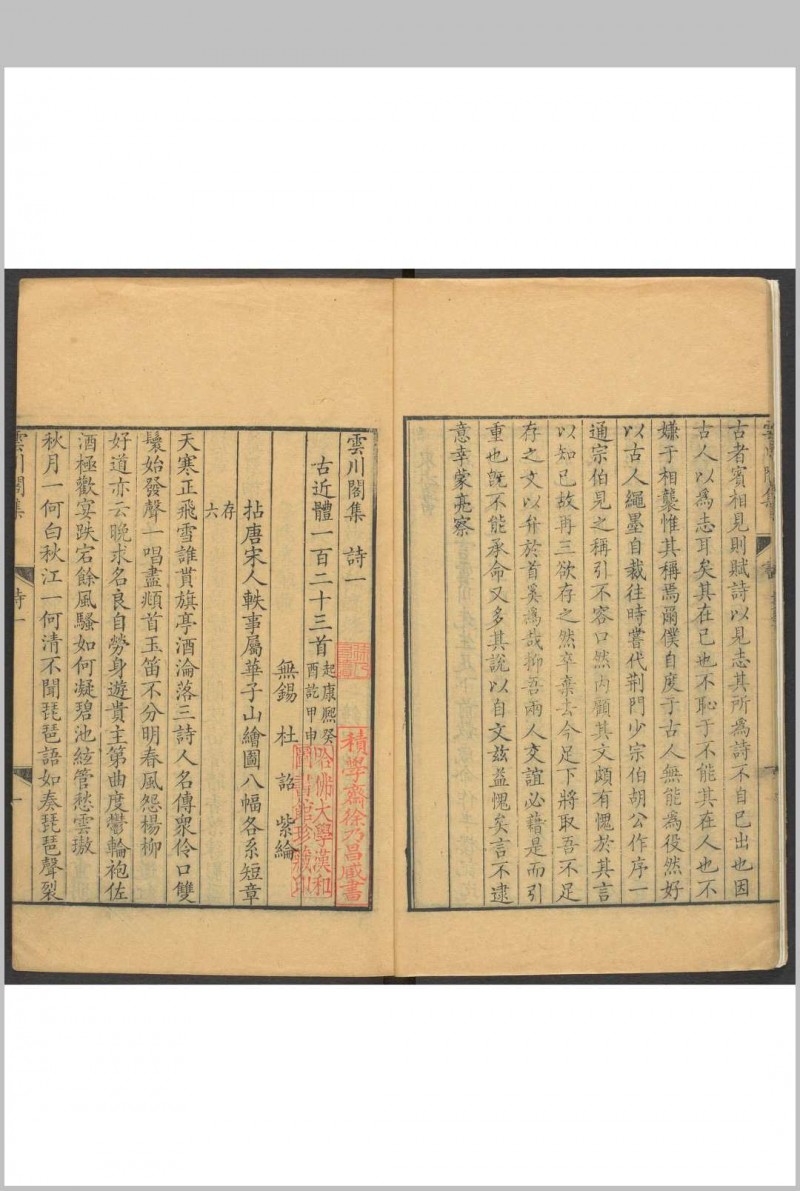 古者賓相見則賦詩以見志其所為詩不自己出也因
古人以為志耳矣其在己也不恥于不能其在人也不
嫌于相襲惟其稱焉爾僕自度于古人無能為役然好
以古人繩墨自裁往時嘗代荆門少宗伯胡公作序一
通宗伯見之稱引不容口然內顧其文頗有愧於其言
以知己故再三欲存之然卒棄去今足下將取吾不足
存之文以弁於首奚為哉抑吾兩人交誼必藉是而引
重也旣不能承命又多其說以自文茲益愧矣言不逮
意幸蒙亮察
雲川閣集　詩一
古近體一百二十三首起康熙癸酉訖甲申
無錫　杜　詔　紫綸
拈唐宋人軼事屬華子山繪圖八幅各系短章
存六
天寒正飛雪誰貰旗亭酒淪落三詩人名傳衆伶口雙
鬟始發聲一唱盡頫首玉笛不分明春風怨楊柳
好道亦云晚求名良自勞身遊貴主第曲度鬱輪袍佐
酒極歡宴跌宕餘風騷如何凝碧池絃管愁雲璈
秋月一何白秋江一何清不聞琵琶語如奏琵琶聲裂
雲川閣集
詩一
積學齋徐乃昌臧書
哈佛大學漢和圖書館珍藏印